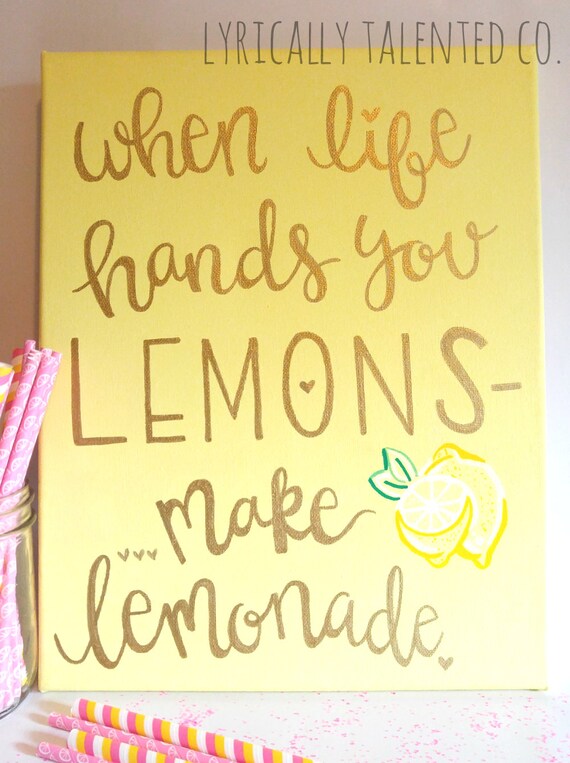 LYRICALLY TALENTED CO.
when life
hands you
LEMONS-
make
lemonade.